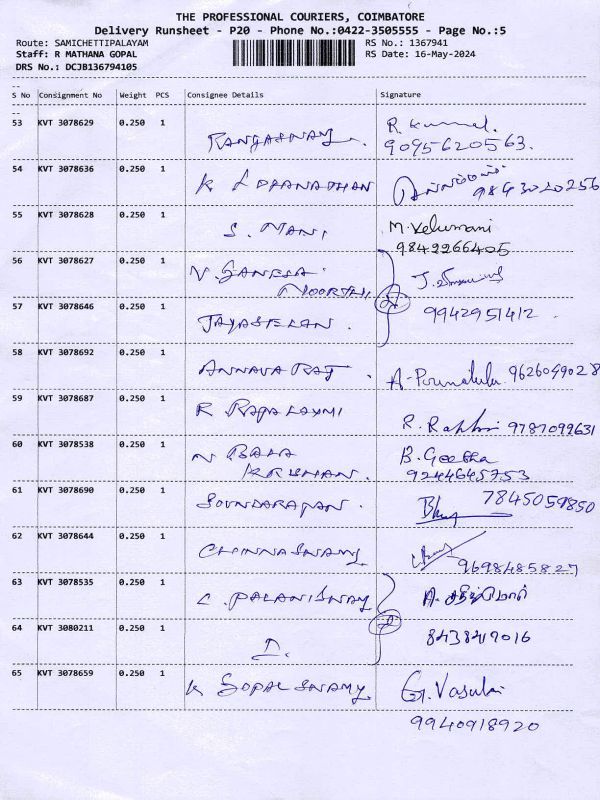 THE PROFESSIONAL COURIERS, COIMBATORE
Delivery Runsheet - P20 - Phone No.:0422-3505555 - Page No.:5
Route: SAMICHETTIPALAYAM RS No.: 1367941
Staff: R MATHANA GOPAL RS Date: 16-May-2024
DRS No.: DCJB136794105
S No Consignment No Weight PCS Consignee Details Signature
53 KVT 3078629 0.250 1 RANGASWAMY. R. Kummal.
9095620563.
54 KVT 3078636 0.250 1 K LOGANATHAN 9843020256
55 KVT 3078628 0.250 1 S. MANI, M. Velumani
9842266405
56 KVT 3078627 0.250 1 N. GANESA MOORTHI
57 KVT 3078646 0.250 1 JAYASEELAN. 9942951412.
58 KVT 3078692 0.250 1 ANNAVA RAJ. 9626049028
59 KVT 3078687 0.250 1 R RAJALAXMI R. 9787099631
60 KVT 3078538 0.250 1 N BALA KRISHNAN. B. Geetha
9244645753
61 KVT 3078690 0.250 1 SOUNDARAJAN. 7845059850
62 KVT 3078644 0.250 1 CHINNASWAMY. 9698485827
63 KVT 3078535 0.250 1 C. PALANISWAMY A.
64 KVT 3080211 0.250 1 D. 8438417016
65 KVT 3078659 0.250 1 K GOPALSWAMY. G. Vasuki
9940918920